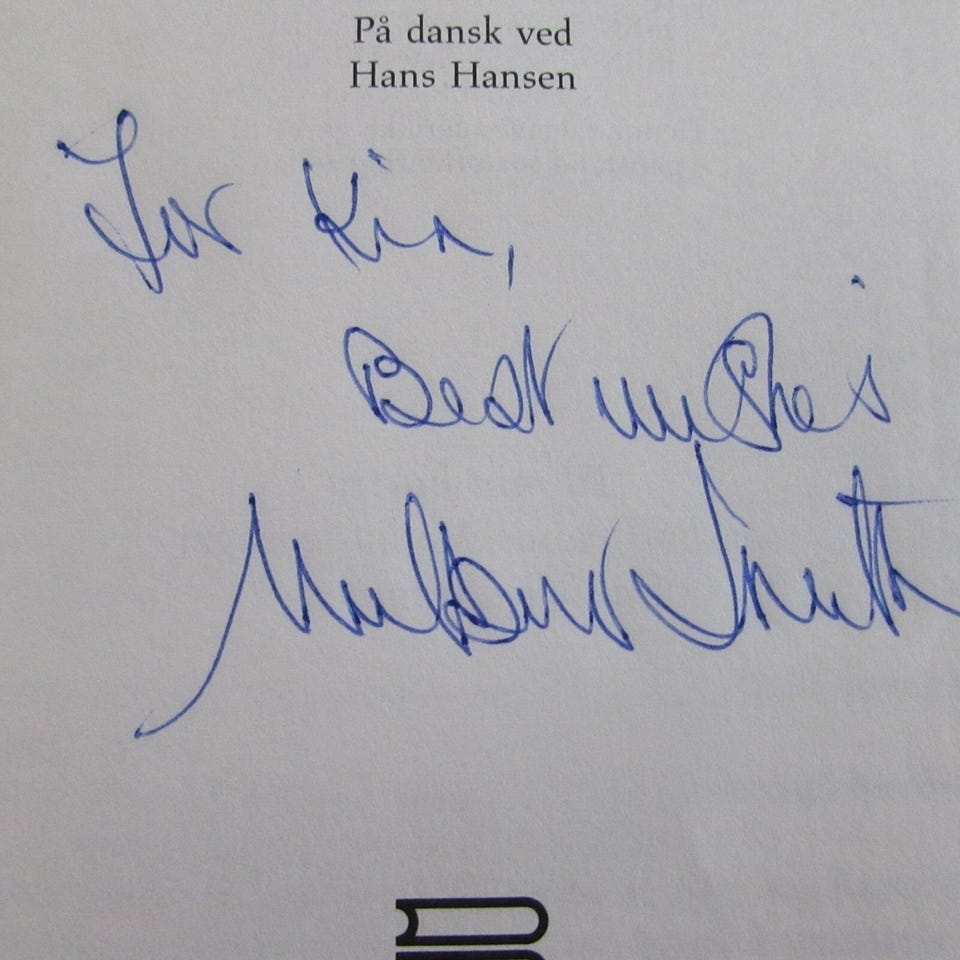 På dansk ved
Hans Hansen
For Kia,
Best wishes
Wilbur Smith